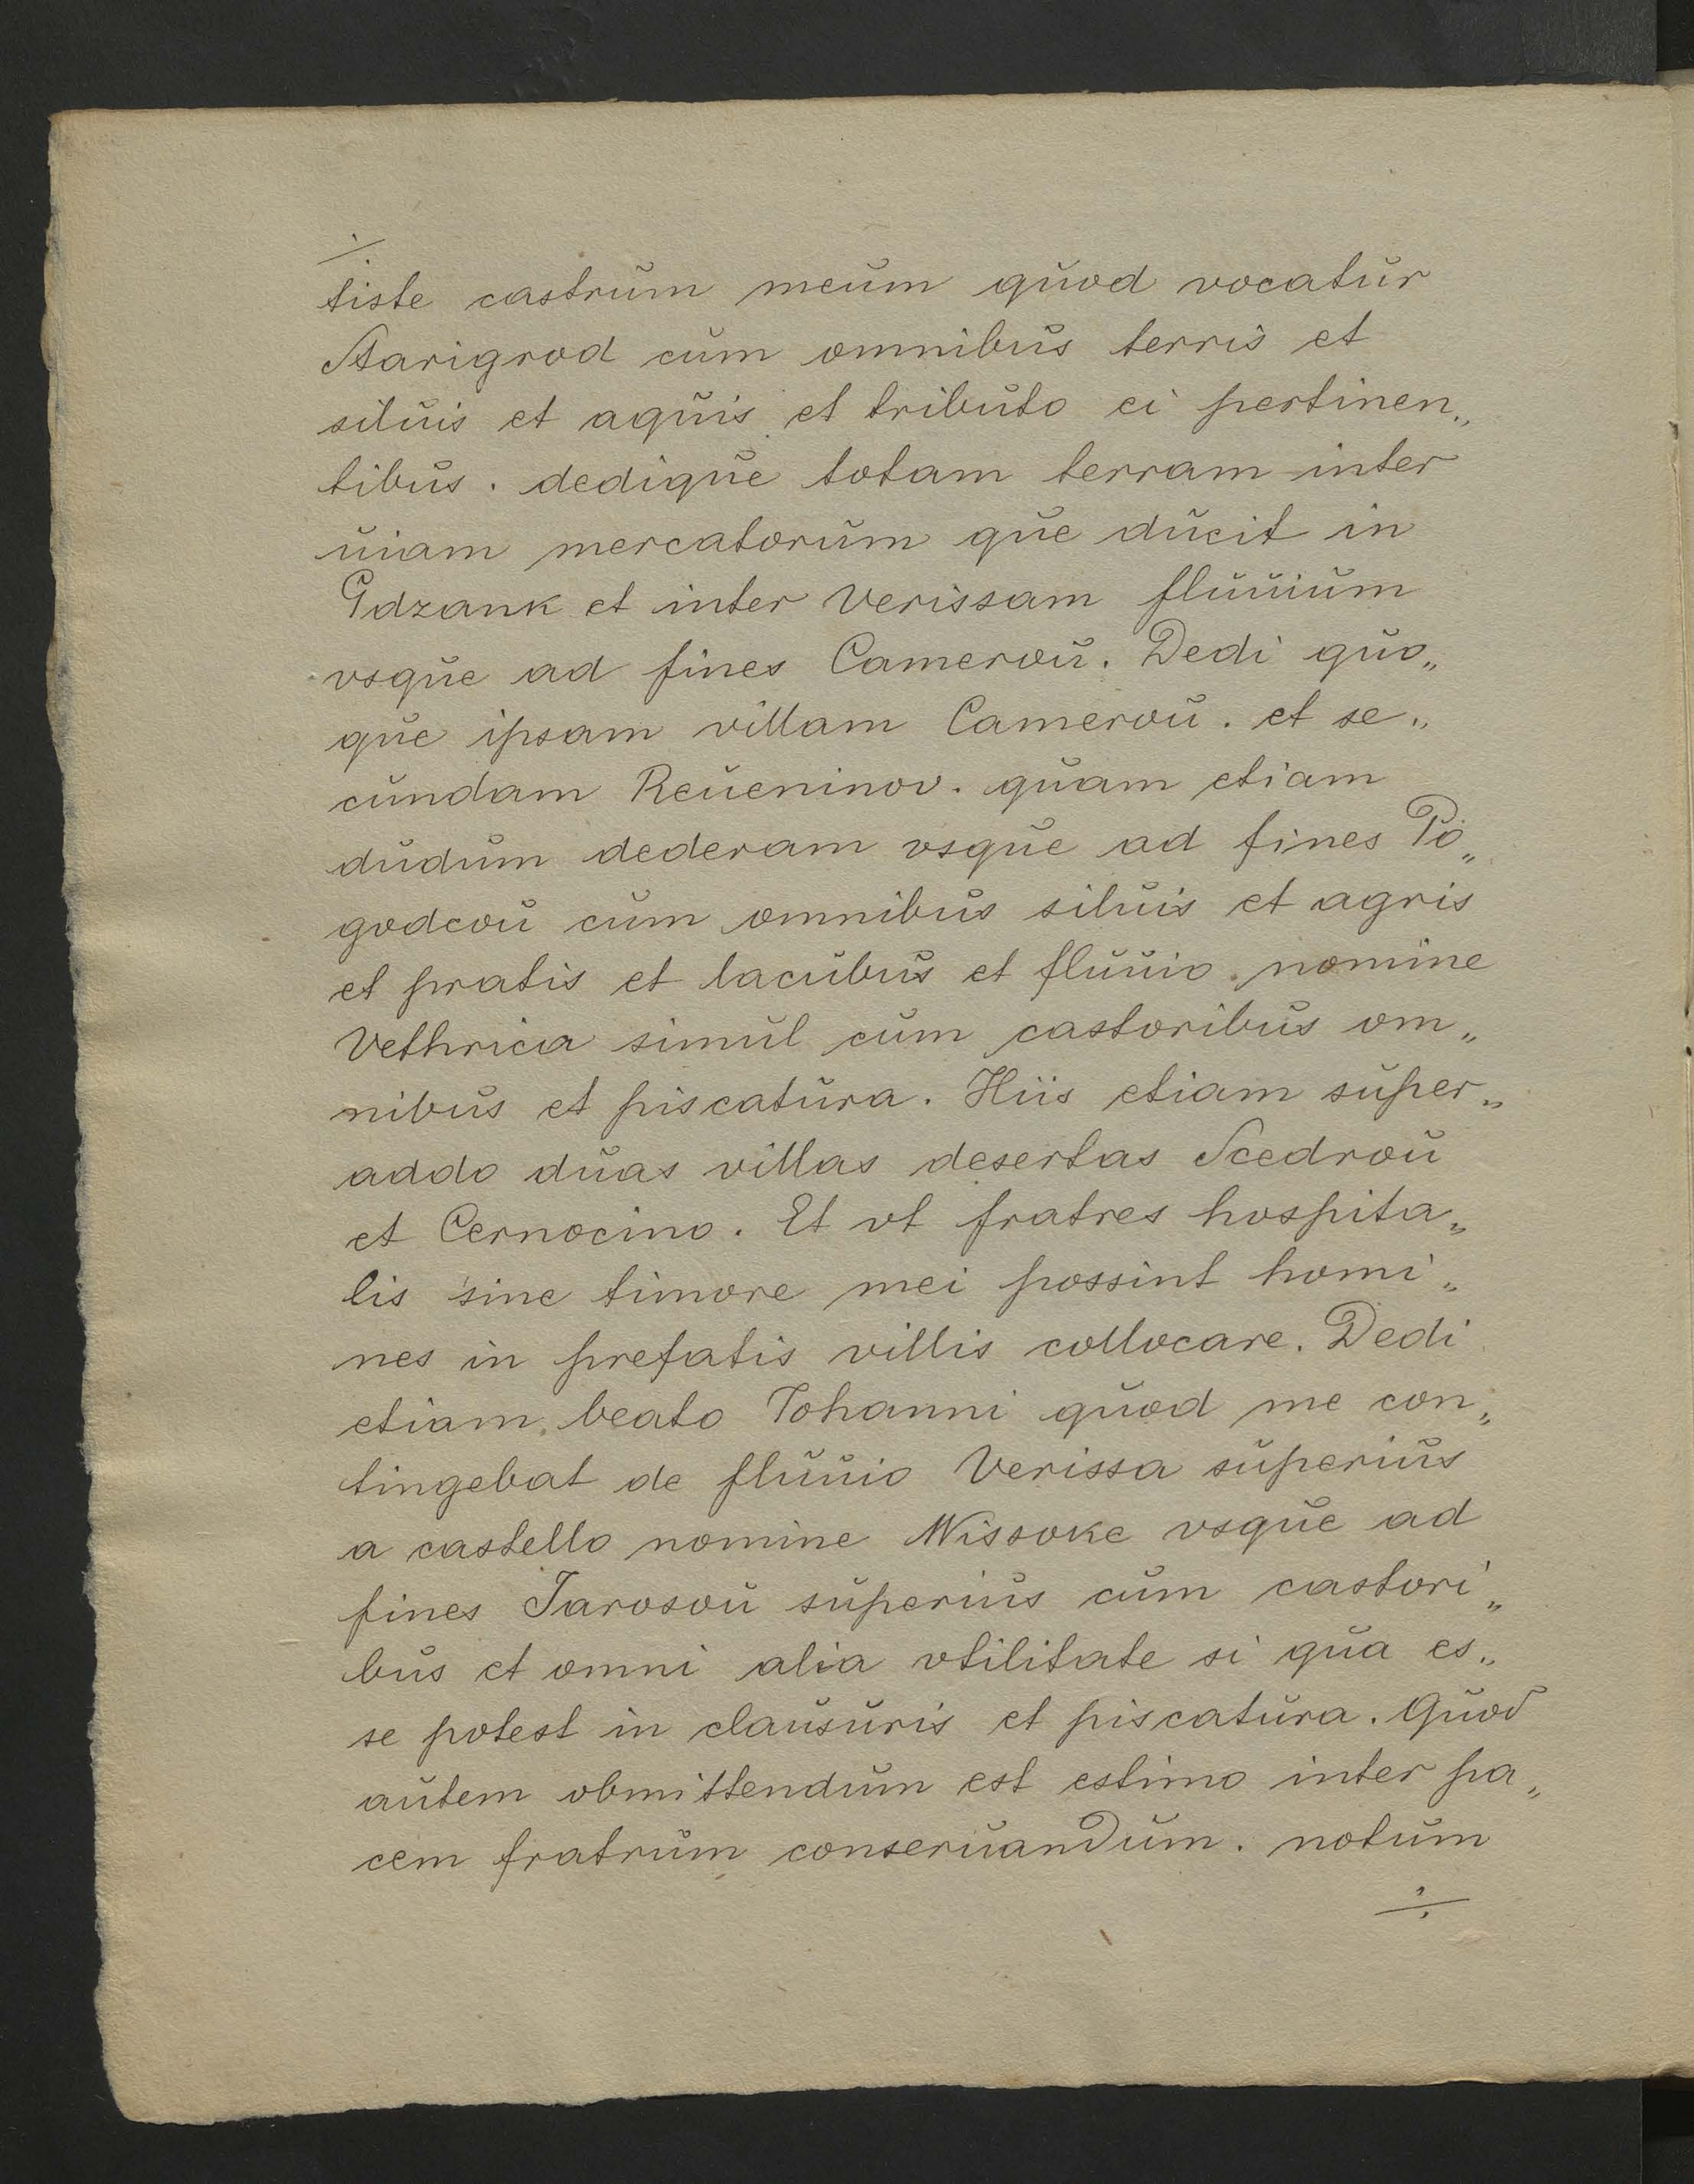 tiste castrum meum quod vocatur
Starigrod cum omnibus terris et
siluis et aquis et tributo ei pertinen„
tibus. dedique totam terram inter
uiam mercatorum que ducit in
Gdzank et inter Verissam fluuium
vsque ad fines Camerou. Dedi quo„
que ipsam villam Camerou. et se„
cundam Reueninov. quam etiam
dudum dederam vsque ad fines Po„
godcou cum omnibus siluis et agris
et pratis et lacubus et fluuio nomine
Vethrica simul cum castoribus om„
nibus et piscatura. Hiis etiam super„
addo duas villas desertas Scedrou
et Cernocino. Et vt fratres hospita„
lis sine timore mei possint homi„
nes in prefatis villis collocare. Dedi
etiam beato Iohanni quod me con„
tingebat de fluuio Verissa superius
a castello nomine Wissoke vsque ad
fines Jarosou superius cum castori„
bus et omni alia vtilitate si qua es„
se potest in clausuris et piscatura. Quod
autem obmittendum est estimo inter pa„
cem fratrum conseruandum. notum